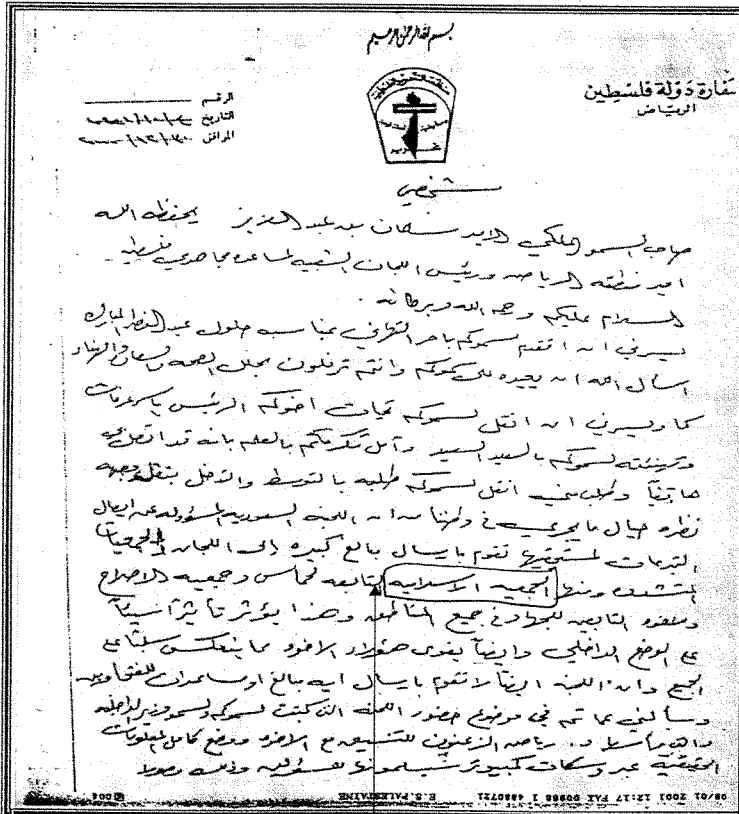 بسم الله الرحمن الرحيم
سفارة دولة فلسطين
الرياض
الرقم
التاريخ
الموافق
شخصي
صاحب السمو الملكي الامير سلمان بن عبد العزيز يحفظه الله
امير منطقة الرياض ورئيس اللجان الشعبيه لمساعدة مجاهدي فلسطين
السلام عليكم ورحمة الله وبركاته .
يسرني ان اتقدم لسموكم باحر التهاني بمناسبه حلول عيد الفطر المبارك
اسأل الله ان يعيده على سموكم وانتم ترفلون بحلل الصحه والسعادة والهناء
كما ويسرني ان انقل لسموكم تحيات اخوكم الرئيس ياسر عرفات
وتهنئته لسموكم بالعيد السعيد وآمل تكرمكم بالعلم بانه قد اتصل بي
هاتفياً وطلب مني انقل لسموكم طلبه بالتوسط والتدخل بنقل وجهه
نظره حيال ما يجري في وطننا من ان اللجنه السعوديه المسؤوله عن ايصال
التبرعات لمستحقيها تقوم بارسال مبالغ كبيره الى اللجان والجمعيات
المتشدده ومنها الجمعيه الاسلاميه التابعه لحماس وجمعيه الاصلاح
التابعين للجهاد في جميع المناطق وهذا يؤثر تأثيراً سيئاً
على الوضع الداخلي وايضاً يقوى هؤلاء الاخوه مما ينعكس سلباً على
الجميع وان اللجنه ايضاً لا تقوم بارسال ايه مبالغ او مساعدات للفتحاويين
وسألني عما تم في موضوع حضور اللجنه التي كتبت لسموكم ولسمو وزير الداخليه
د. رياض الزعنون للتنسيق مع الاخوه ووضع كامل المعلومات
الحقيقيه عبر وسكات كمبيوتر سيسلمونها للمسؤوليه وذلك
08/01 2001 12:17 FAX 00966 1 4880721 E.S.PALESTAINE 004